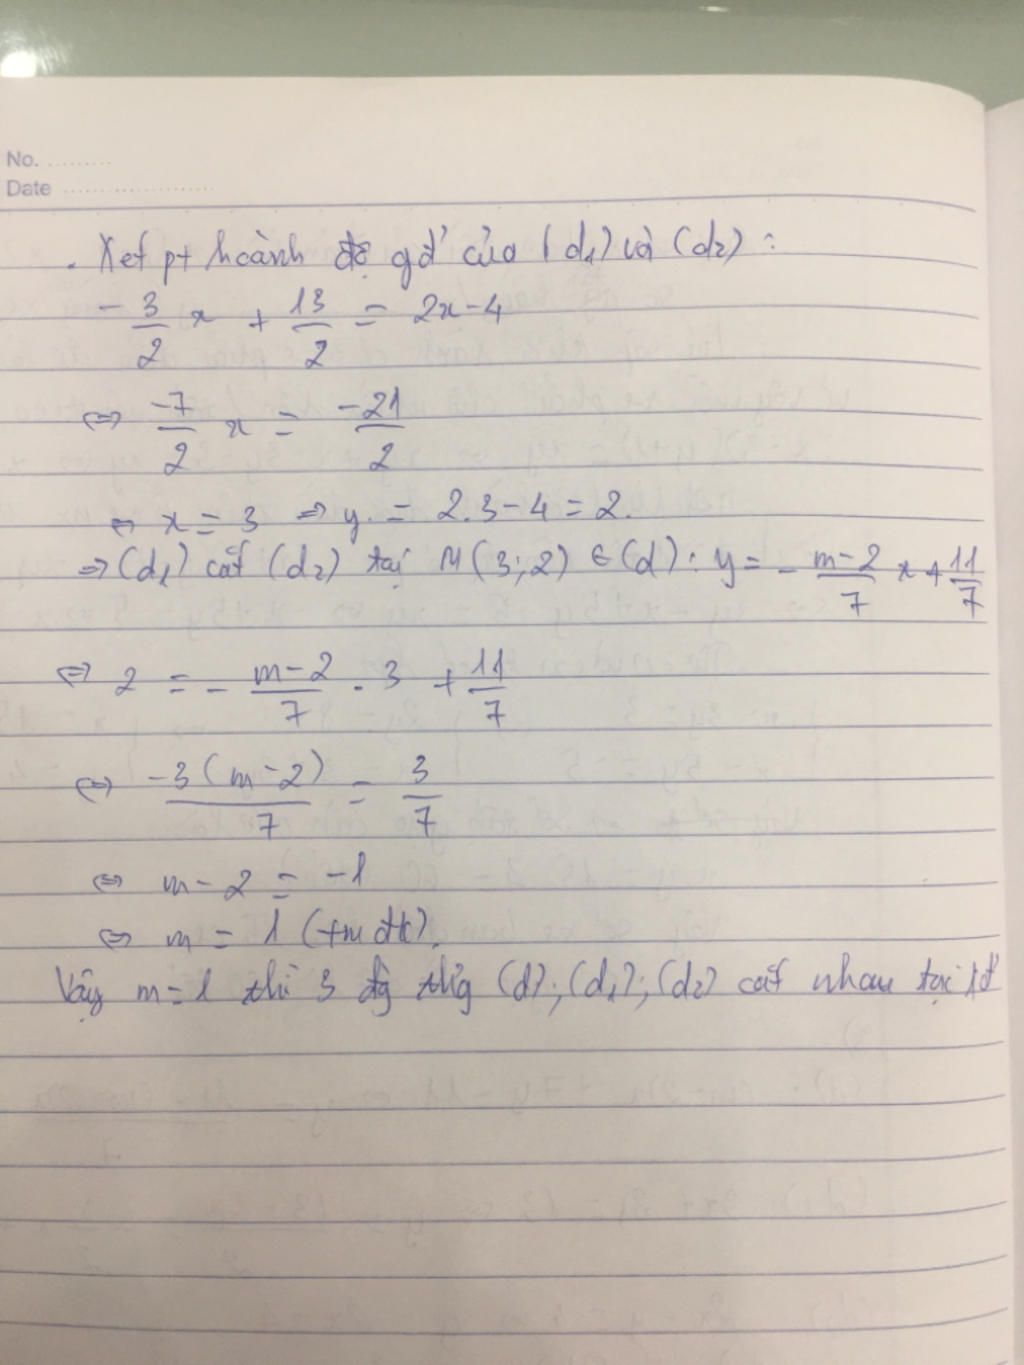 No. .........
Date .....................
. Xét pt hoành độ gđ của (d₁) và (d₂) :
-3/2 x + 13/2 = 2x-4
⇔ -7/2 x = -21/2
⇔ x = 3 ⇒ y = 2.3-4 = 2.
⇒ (d₁) cắt (d₂) tại M(3;2) ∈ (d) : y = - m-2/7 x + 11/7
⇔ 2 = - m-2/7 . 3 + 11/7
⇔ -3(m-2)/7 = 3/7
⇔ m-2 = -1
⇔ m = 1 (tm đk).
Vậy m=1 thì 3 đg thẳng (d);(d₁);(d₂) cắt nhau tại 1đ